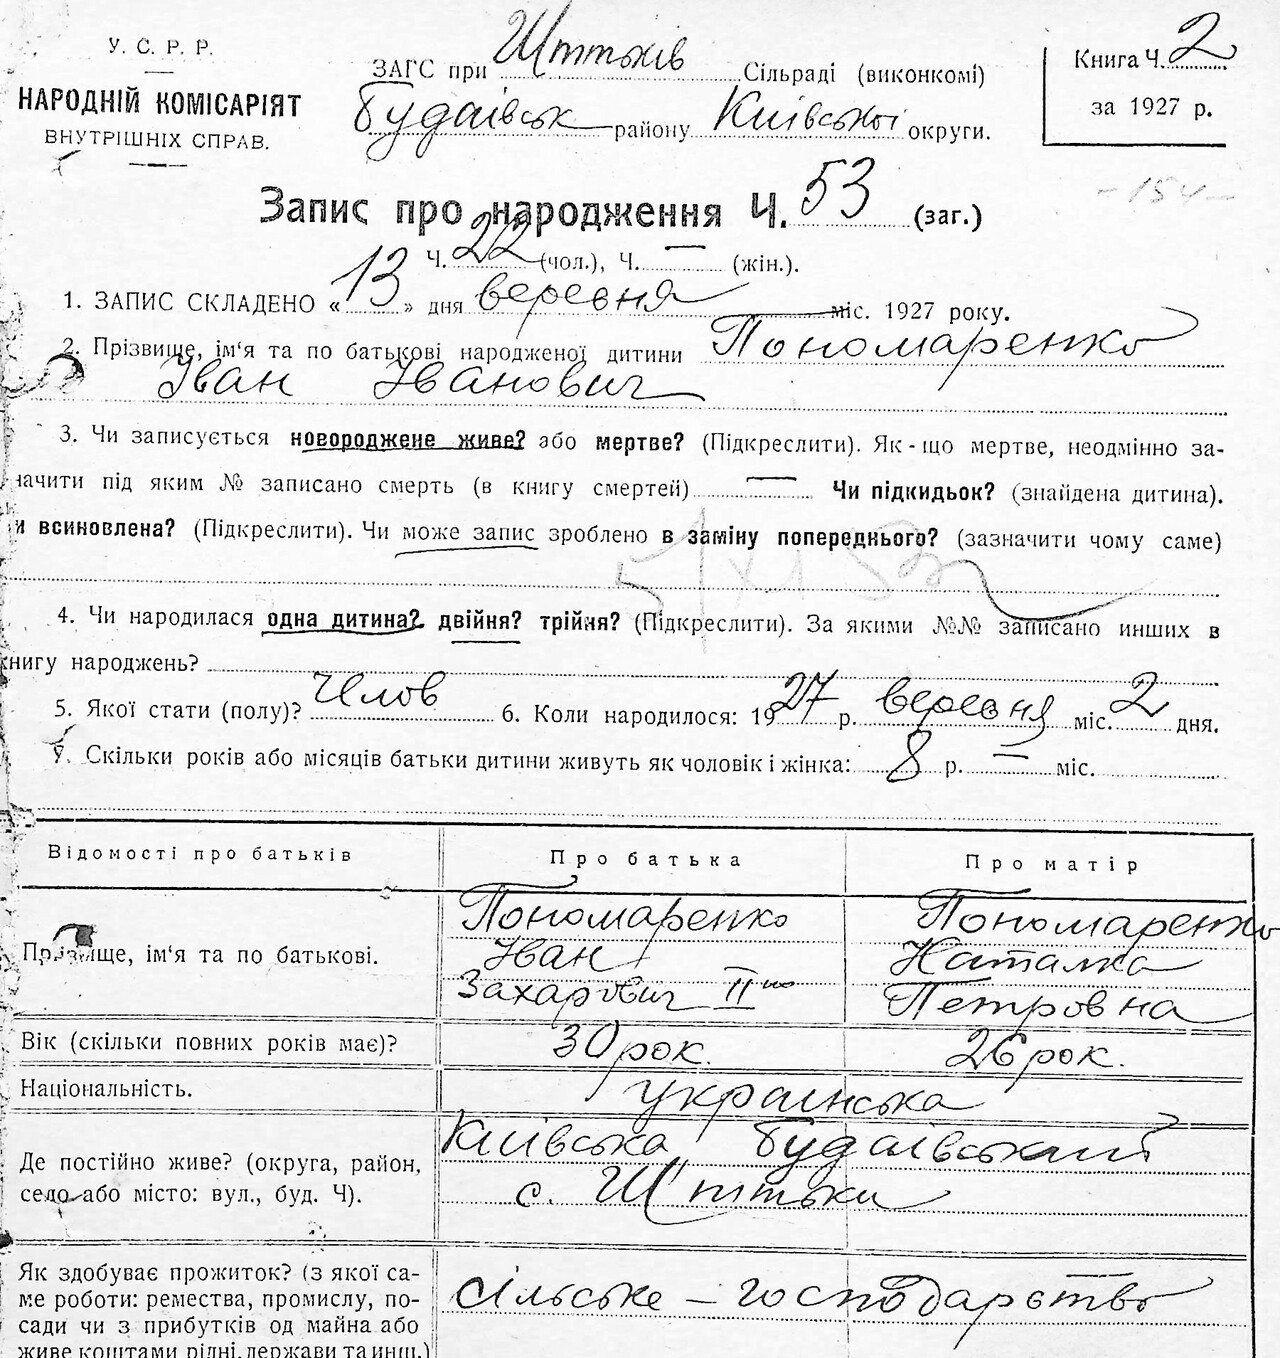 У. С. Р. Р.
НАРОДНІЙ КОМІСАРІЯТ
ВНУТРІШНІХ СПРАВ.
ЗАГС при Шпітьків Сільраді (виконкомі)
Будаївськ району Київської округи.
Книга Ч. 2
за 1927 р.
-154-
Запис про народження Ч. 53 (заг.)
Ч. 22 (чол.), Ч. — (жін.).
1. ЗАПИС СКЛАДЕНО «13» дня вересня міс. 1927 року.
2. Прізвище, ім‘я та по батькові народженої дитини Пономаренко
Іван Іванович
3. Чи записується новороджене живе? або мертве? (Підкреслити). Як-що мертве, неодмінно за-
начити під яким № записано смерть (в книгу смертей) — Чи підкидьок? (знайдена дитина).
и всиновлена? (Підкреслити). Чи може запис зроблено в заміну попереднього? (зазначити чому саме)
4. Чи народилася одна дитина? двійня? трійня? (Підкреслити). За якими №№ записано инших в
книгу народжень?
5. Якої стати (полу)? Челов 6. Коли народилося: 1927 р. вересня міс. 2 дня.
7. Скільки років або місяців батьки дитини живуть як чоловік і жінка: 8 р. — міс.
Відомості про батьків Про батька Про матір
Прізвище, ім‘я та по батькові.
Пономаренко Іван Захарович ІІ
Пономаренко Наталка Петровна
Вік (скільки повних років має)? 30 рок. 26 рок.
Національність. українська
Де постійно живе? (округа, район, Київська Будаівський
село або місто: вул., буд. Ч). с. Шпітьки
Як здобуває прожиток? (з якої са- сільське – господарство
ме роботи: ремества, промислу, по-
сади чи з прибутків од майна або
живе коштами рідні, держави та инш.)